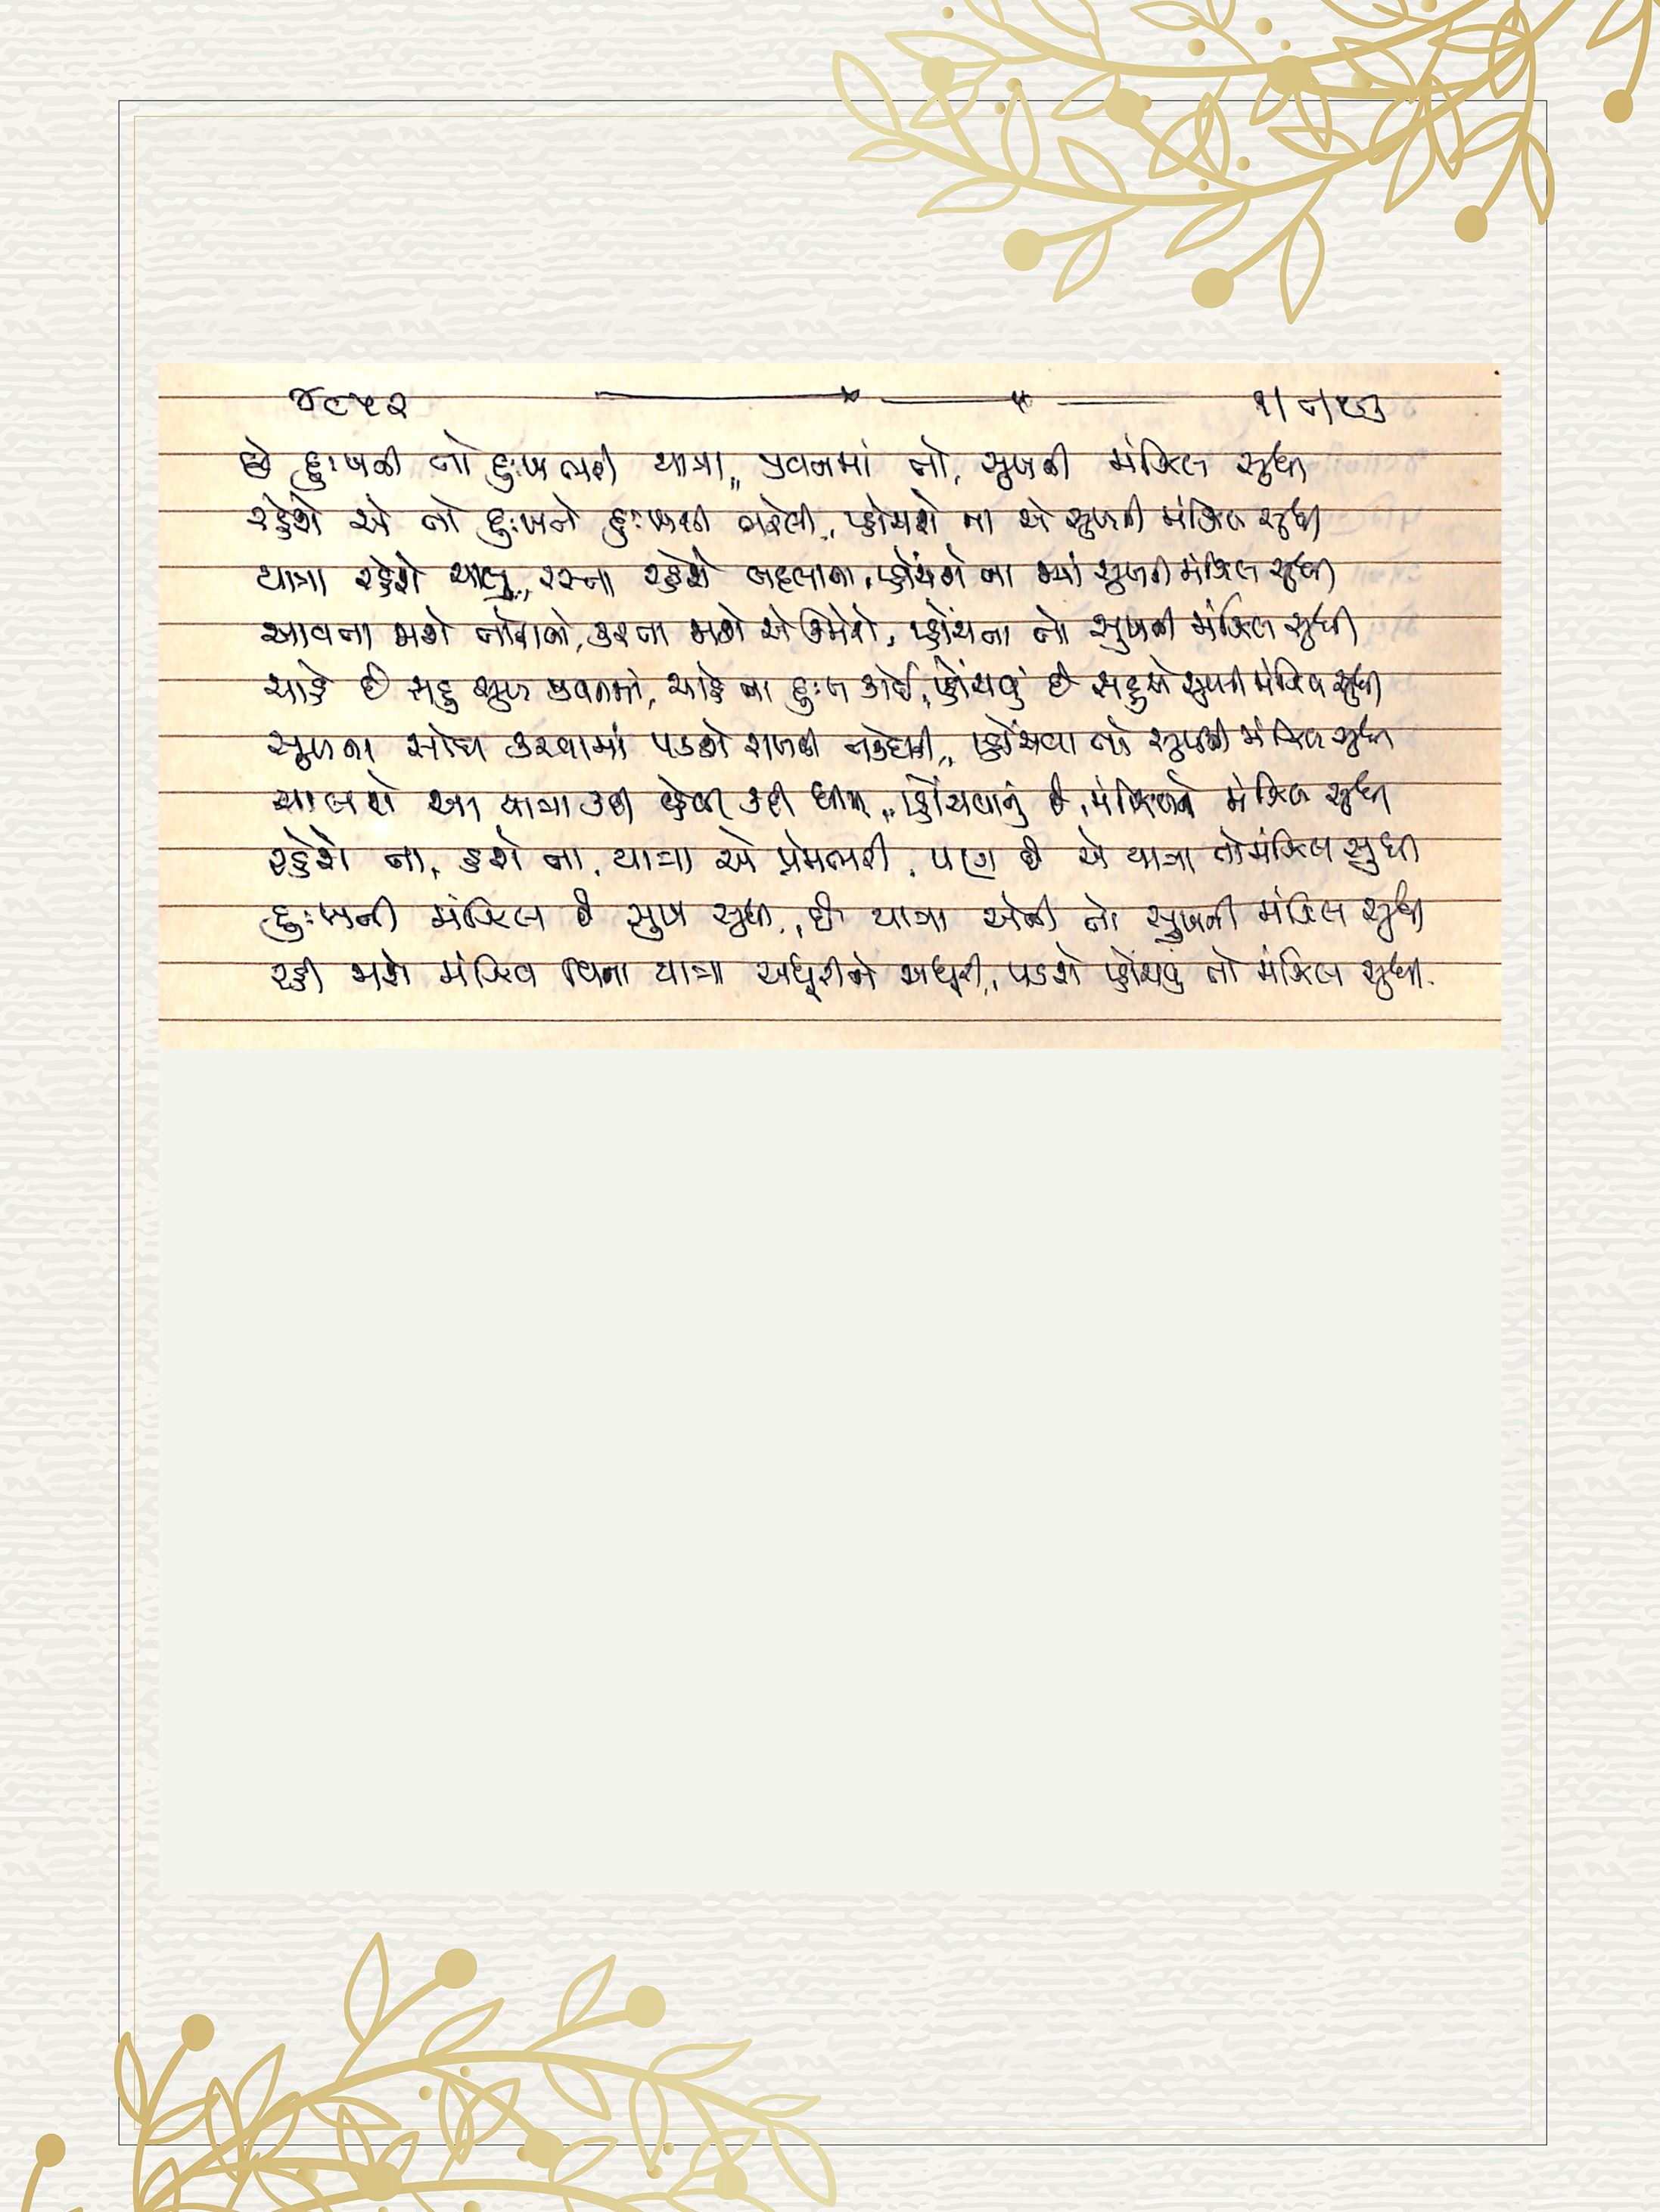 ૪૯૫૨
છે દુઃખની તો દુઃખભરી યાત્રા,, જીવનમાં તો, સુખની મંઝિલ સુધી
રહેશે એ તો દુઃખને દુઃખથી ભરેલી, પ્હોંચશે ના એ સુખની મંઝિલ સુધી
યાત્રા રહેશે ચાલુ,, રસ્તા રહેશે બદલાતા, પ્હોંચશે ના જ્યાં સુખની મંઝિલ સુધી
આવતા જાશે તોફાનો, કરતા જાશે એ ઉમેરો, પ્હોંચતા તો સુખની મંઝિલ સુધી
ચાહે છે સહુ સુખ જીવનમાં, ચાહે ના દુઃખ કોઈ, પ્હોંચવું છે સહુએ સુખની મંઝિલ સુધી
સુખના સોદા કરવામાં પડશે રાખવી તકેદારી,, પ્હોંચવા તો સુખની મંઝિલ સુધી
ચાલશે આ યાત્રા કદી કદી ધીમી,, પ્હોંચવાનું છે, મંઝિલને મંઝિલ સુધી
રહેશે ના, હશે ના, યાત્રા એ પ્રેમભરી, પણ છે એ યાત્રા તો મંઝિલ સુધી
દુઃખની મંઝિલ છે સુખ સુધી,, છે યાત્રા એની તો સુખની મંઝિલ સુધી
રહી જાશે મંઝિલ વિના યાત્રા અધૂરીને અધૂરી,, પડશે પ્હોંચવું તો મંઝિલ સુધી.